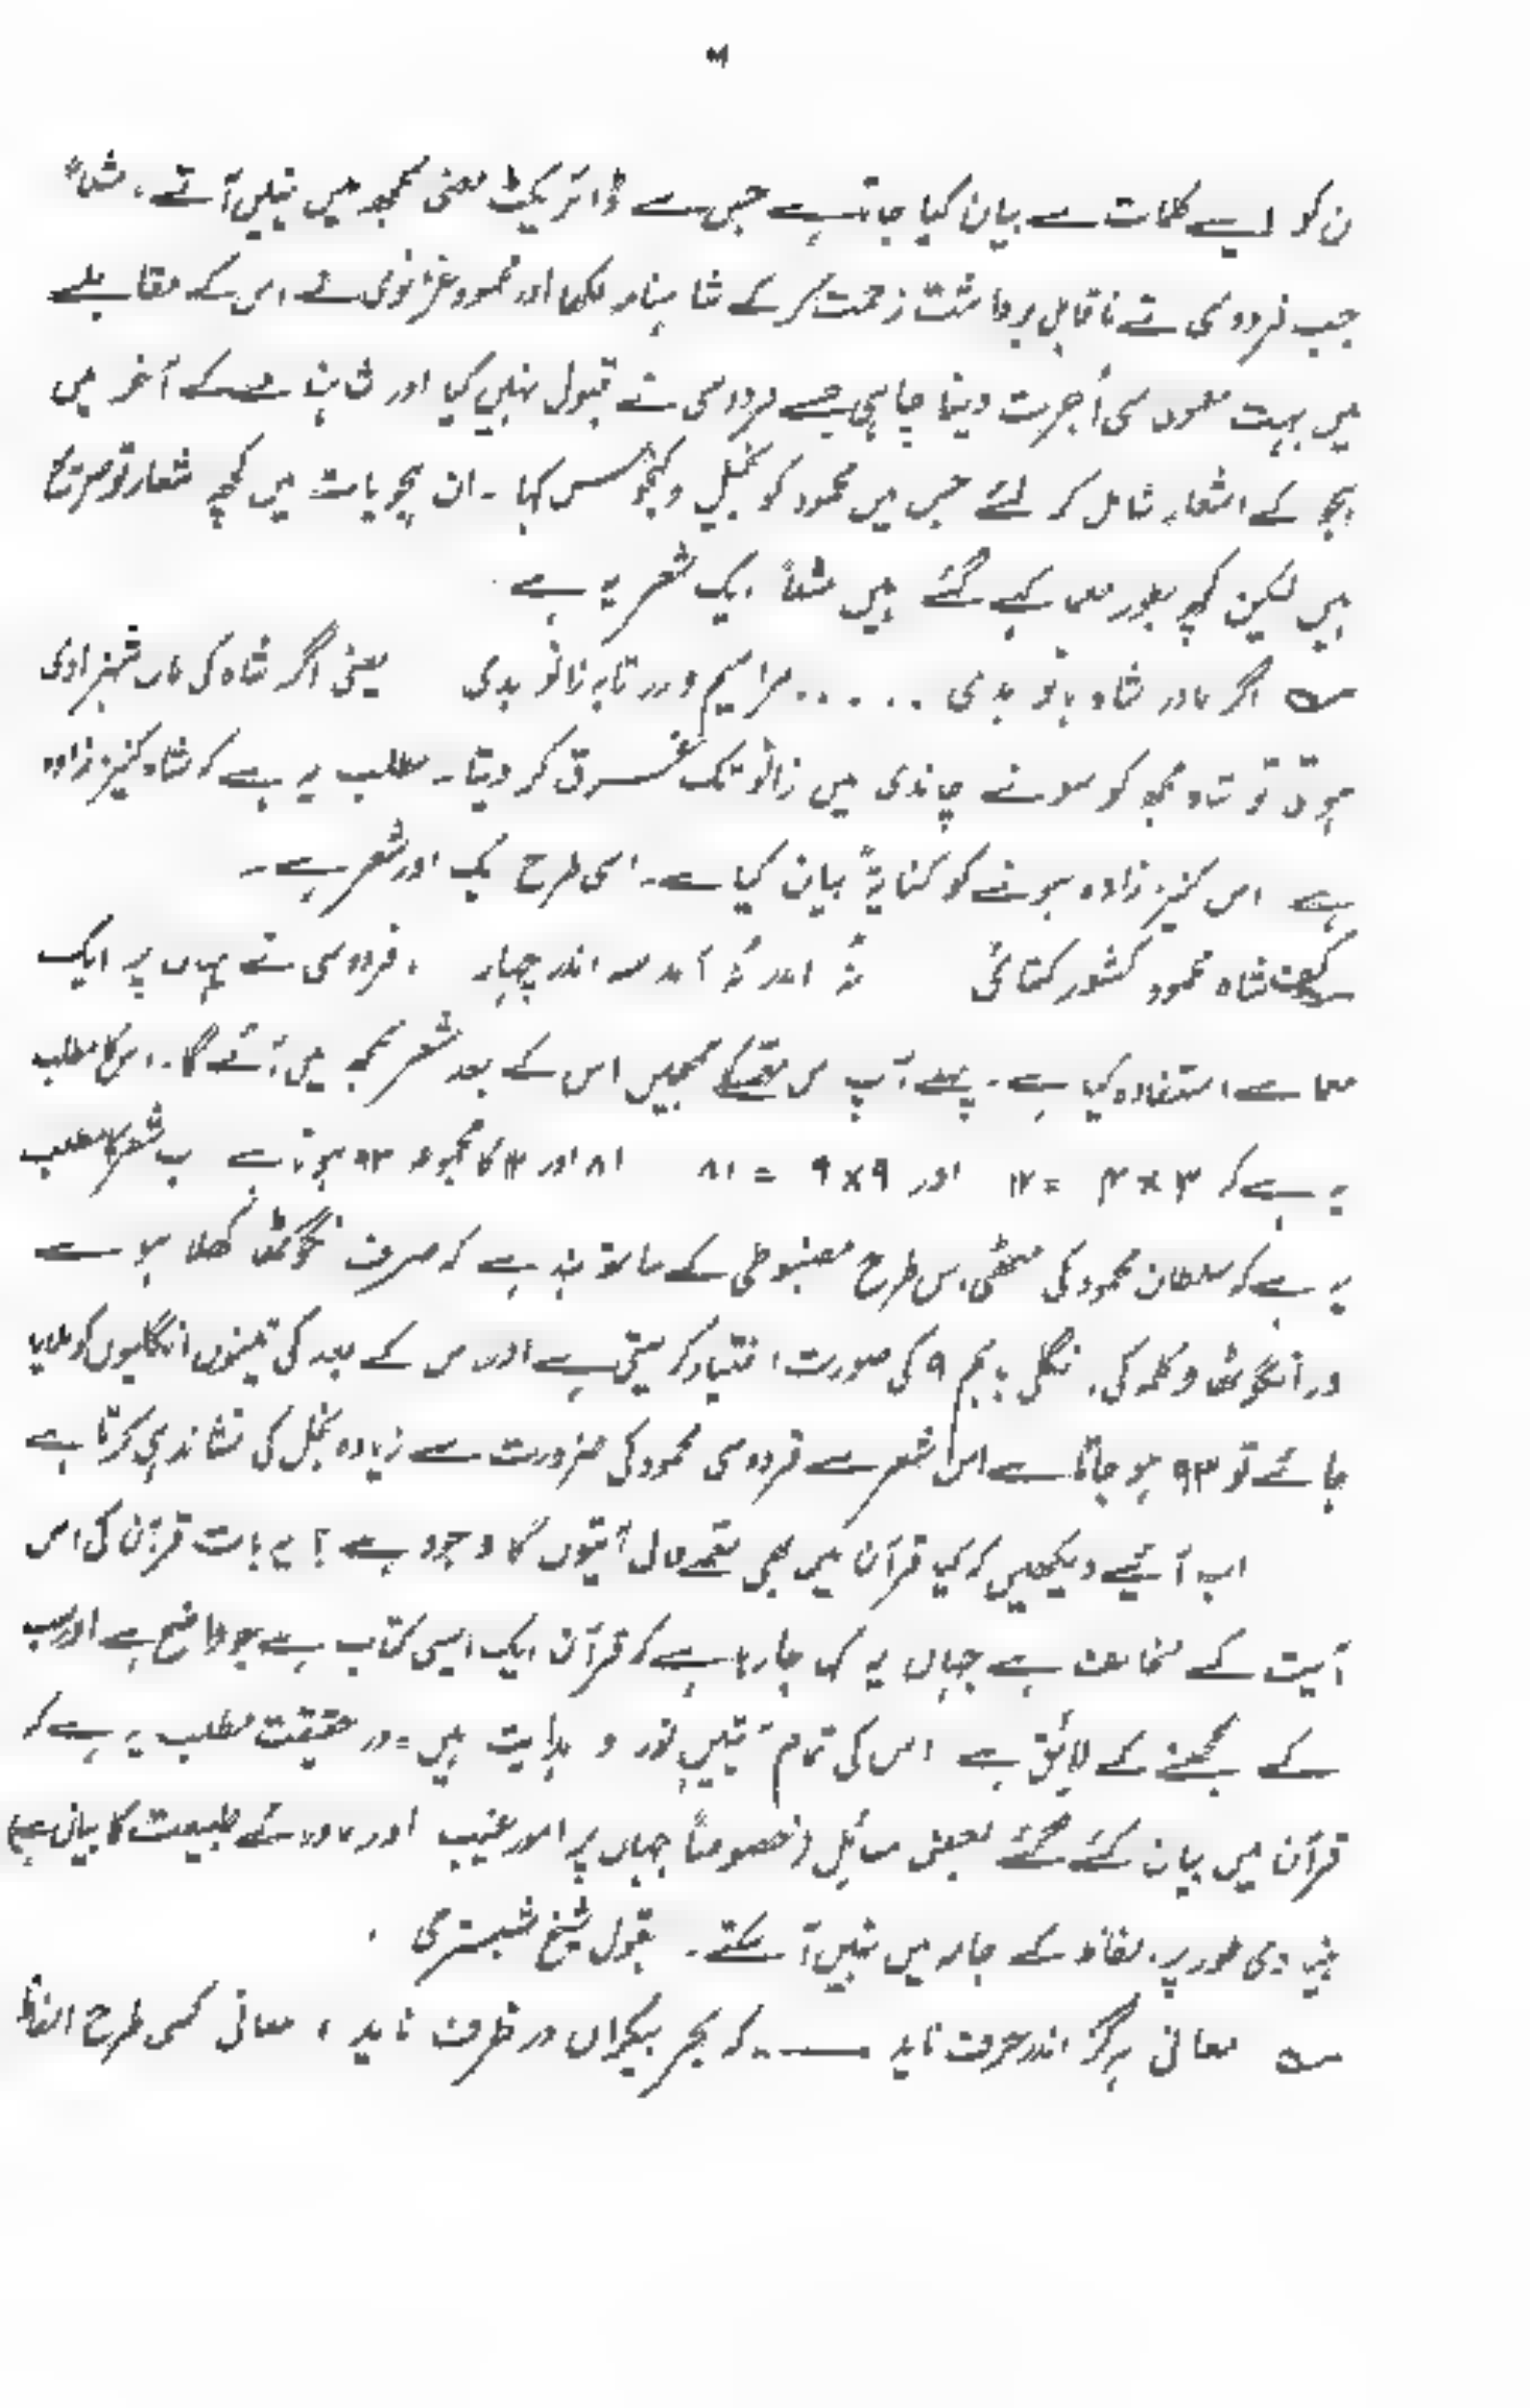 ۳۱
ن کو ایسے کلمات سے بیان کیا جاتا ہے جس سے ڈائریکٹ معنی سمجھ میں نہیں آتے، مثلاً
جب فردوسی نے ناقابل برداشت زحمت کر کے شاہنامہ لکھا اور محمود غزنوی نے اس کے مقابلے
میں بہت معمولی سی اُجرت دینا چاہی جسے فردوسی نے قبول نہیں کیا اور شاہنامے کے آخر میں
ہجو کے اشعار شامل کر لئے جس میں محمود کو بخیل و کنجوس کہا۔ ان ہجویات میں کچھ شعار تو صریح
ہیں لیکن کچھ بطور معما کہے گئے ہیں مثلاً ایک شعر یہ ہے۔
؎ اگر مادر شاہ بانو بدی ..... مرا سیم و زر تا بہ زانو بدی یعنی اگر شاہ کی ماں شہزادی
ہوتی تو شاہ مجھ کو سونے چاندی میں زانو تک غرق کر دیتا۔ مطلب یہ ہے کہ شاہ کنیز زادہ
ہے اس کنیز زادہ ہونے کو کنایۃً بیان کیا ہے۔ اسی طرح یک اور شعر ہے۔
کف شاہ محمود کشور کشائی نُہ اندر نُہ آمد سہ اندر چہار ، فردوسی نے یہاں پر ایک
معما سے استفادہ کیا ہے۔ پہلے آپ س معمے کو سمجھیں اس کے بعد شعر سمجھ میں آئے گا۔ اس کا مطلب
یہ ہے کہ ۳ × ۴ = ۱۲ اور ۹ × ۹ = ۸۱ ۸۱ اور ۱۲ کا مجموعہ ۹۳ ہوتا ہے ب شعر کا مطلب
یہ ہے کہ سلطان محمود کی مٹھی اس طرح مضبوطی کے ساتھ بند ہے کہ صرف نگوٹھا کھلا ہوا ہے
ور انگوٹھا و کلمہ کی نگلی باہم ۹ کی صورت اختیار کر لیتی ہے اور س کے بعد کی تینوں انگلیوں کو ملایا
جائے تو ۹۳ ہو جاتا ہے اس شعر سے فردوسی محمود کی ضرورت سے زیادہ بخل کی نشاندہی کرتا ہے
اب آئیے دیکھیں کہ کیا قرآن میں بھی معمے والی آیتوں کا وجود ہے؟ یہ بات قرآن کی اس
آیت کے مخالف ہے جہاں یہ کہا جا رہا ہے کہ قرآن ایک ایسی کتاب ہے جو واضح ہے اور سب
کے سمجھنے کے لائق ہے اس کی تمام آیتیں نور و ہدایت ہیں۔ در حقیقت مطلب یہ ہے کہ
قرآن میں بیان کئے گئے بعض مسائل (خصوصاً جہاں پر امور غیب اور ماورائے طبیعت کا بیان ہے)
بنیادی طور پر الفاظ کے جامہ میں نہیں آ سکتے۔ بقول شیخ شبستری۔
؎ معانی ہرگز اندر حرف ناید ــــــ کہ بحر بیکراں در ظرف ناید ، معانی کسی طرح الفاظ